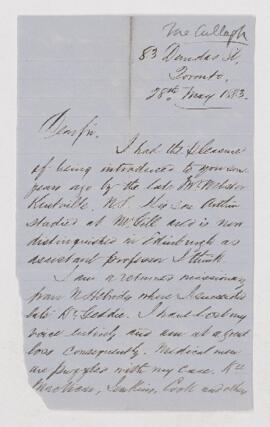 McCullagh
83 Dundas St.
Toronto,
28th May 1883.
Dear Sir,
I had the pleasure
of being introduced to you some
years ago by the late Mr Webster
Kentville, N.S. His son Arthur
studied at McGill and is now
distinguished in Edinburgh as
assistant professor I think.
I am a returned missionary
from N. Hebrides where I succeeded
late Dr. Geddie. I have lost my
voice entirely and am at a great
loss consequently. Medical men
are puzzled with my case. Drs
Jenkins, Cook and other